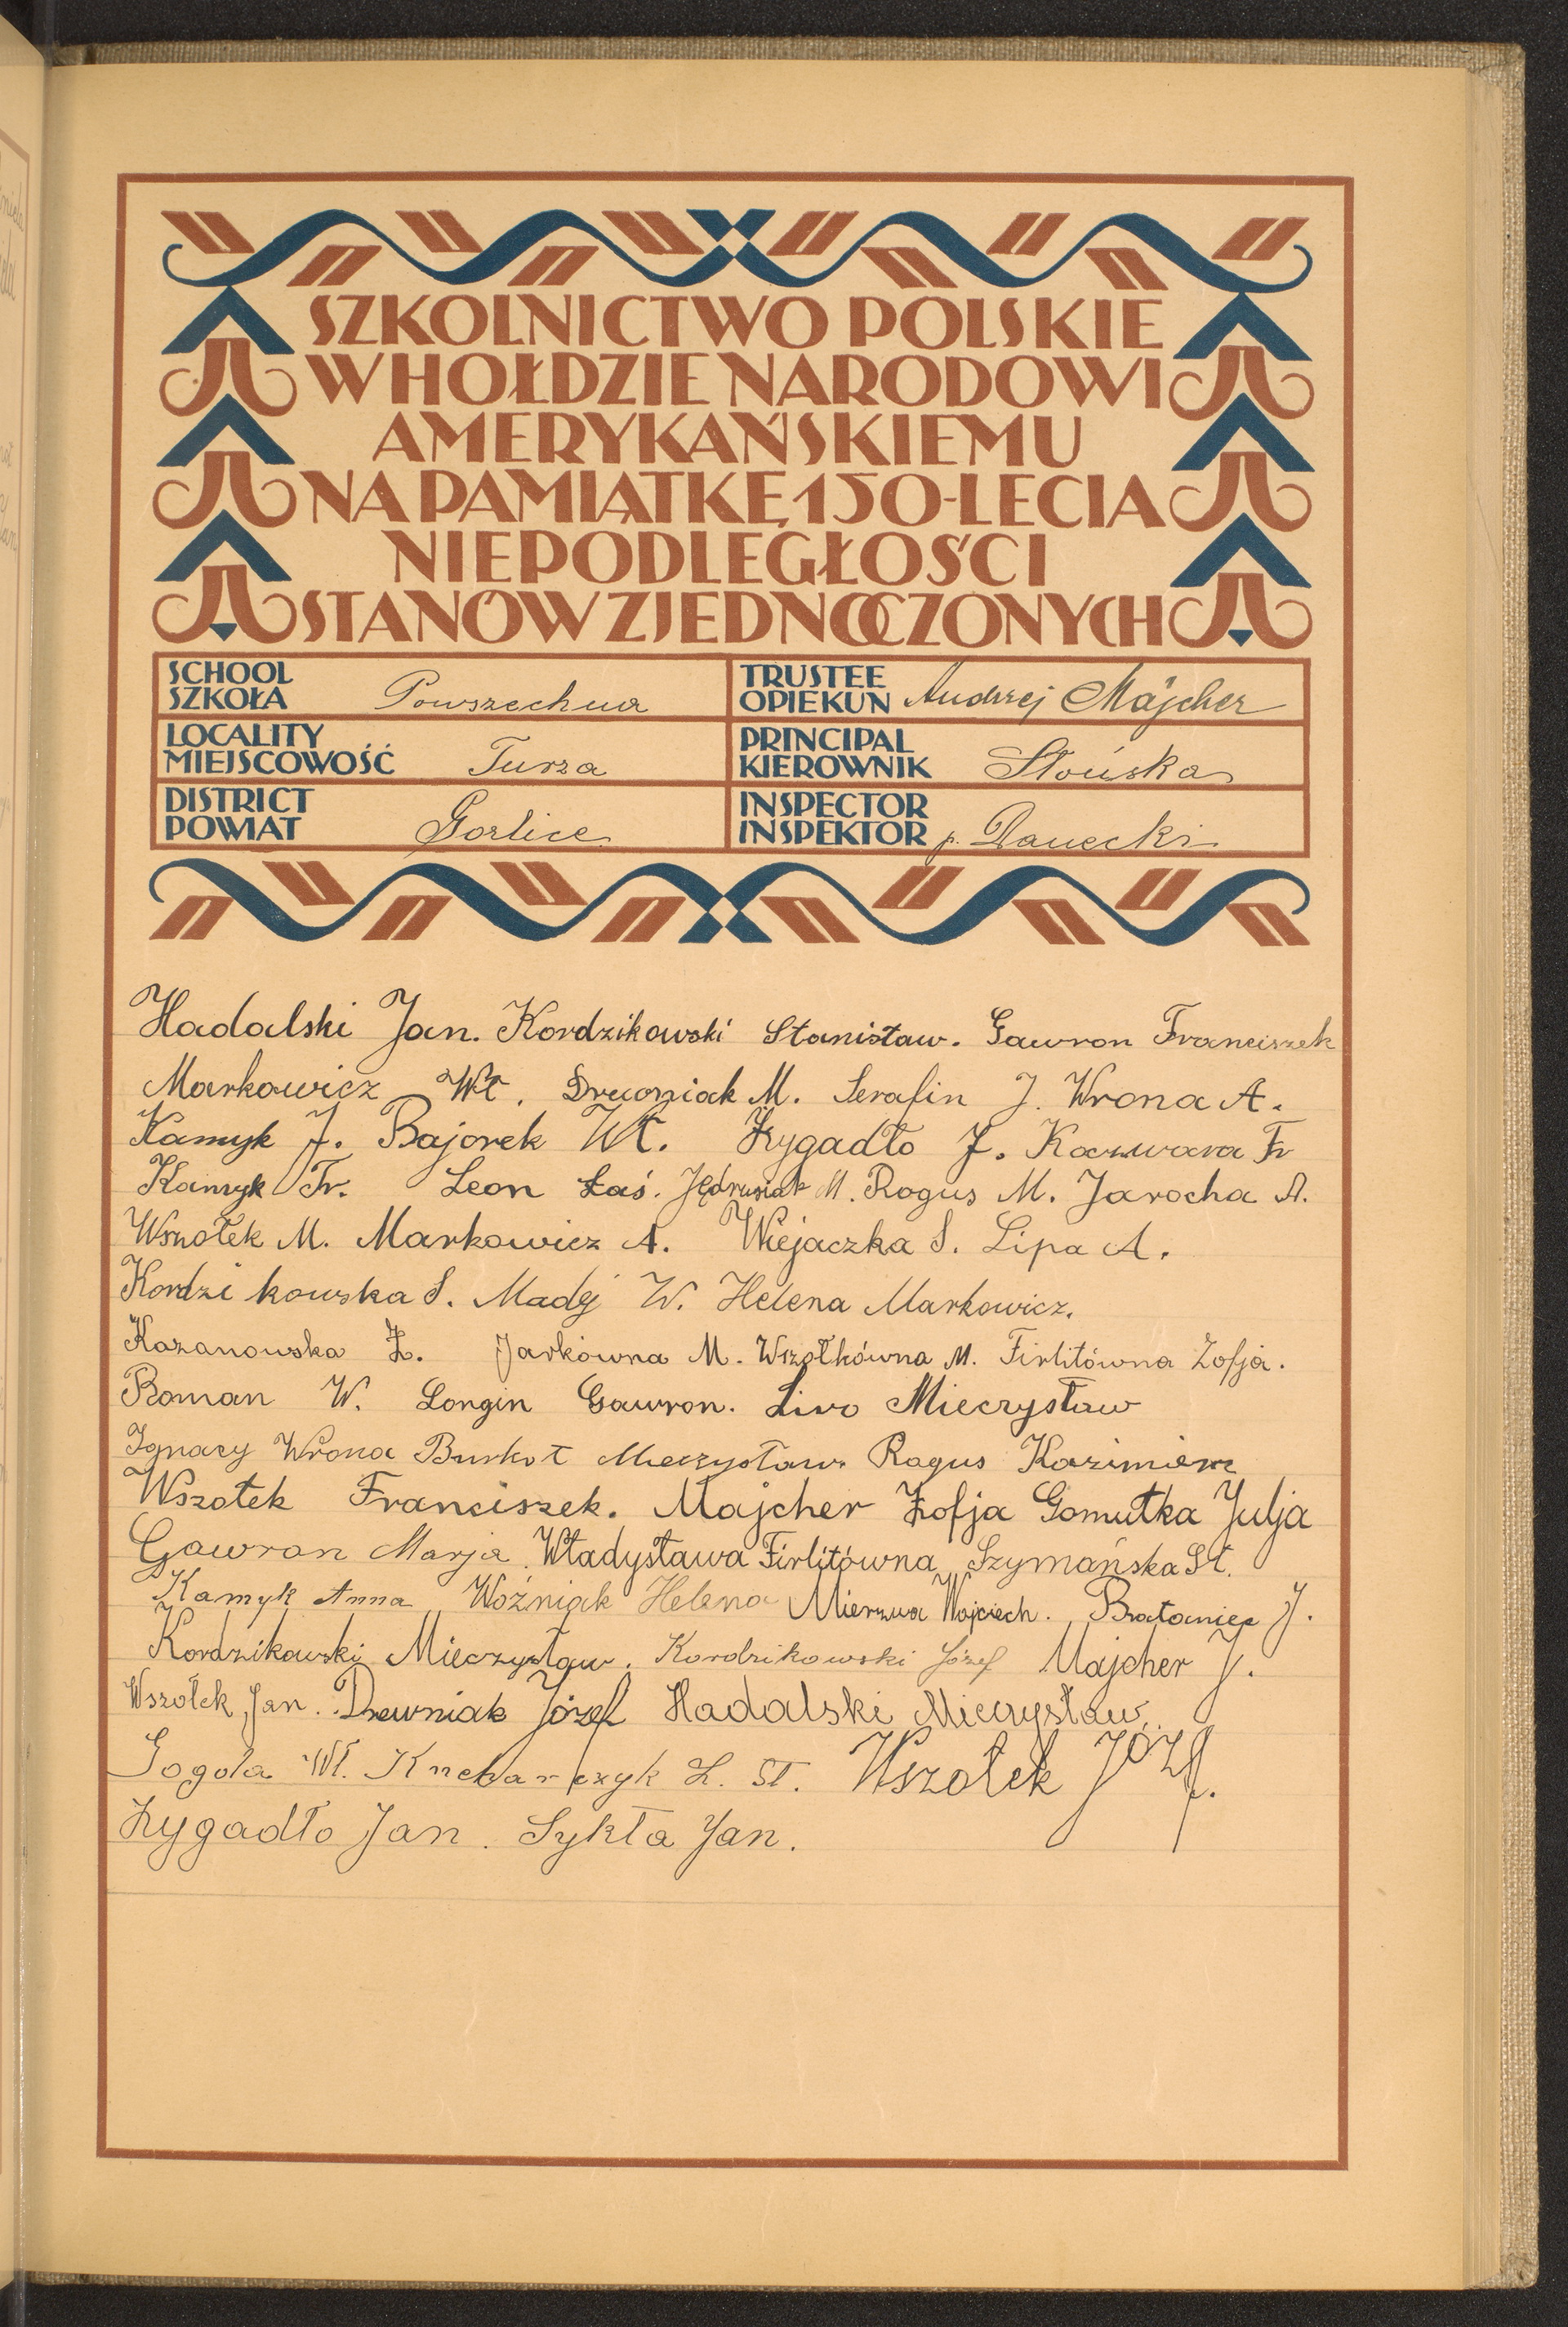 SZKOLNICTWO POLSKIE
W HOŁDZIE NARODOWI
AMERYKAŃSKIEMU
NA PAMIĄTKĘ 150-LECIA
NIEPODLEGŁOŚCI
STANÓW ZJEDNOCZONYCH
SCHOOL
SZKOŁA Powszechna
TRUSTEE
OPIEKUN Andrzej Majcher
LOCALITY
MIEJSCOWOŚĆ Turza
PRINCIPAL
KIEROWNIK Słońska
DISTRICT
POWIAT Gorlice
INSPECTOR
INSPEKTOR p. Panecki
Hadalski Jan. Kordzikowski Stanisław. Gawron Franciszek
Markowicz Wł. Drewniak M. Serafin J. Wrona A.
Kamyk J. Bajorek Wł. Zygadło J. Kaźwara Fr
Kamyk Fr. Leon Łaś. Jędrusiak M. Rogus M. Jarocha A.
Wszołek M. Markowicz A. Wiejaczka S. Lipa A.
Kordzikowska S. Madej W. Helena Markowicz.
Kazanowska Z. Jarkówna M. Wszołkówna M. Firlitówna Zofja.
Roman W. Longin Gawron. Liro Mieczysław
Ignacy Wrona Burkot Mieczysław Rogus Kazimierz
Wszołek Franciszek. Majcher Zofja Gomułka Julja
Gawron Marja. Władysława Firlitówna Szymańska St.
Kamyk Anna Woźniak Helena Mierzwa Wojciech. Bratoniec J.
Kordzikowski Mieczysław. Kordzikowski Józef Majcher J.
Wszołek Jan. Drewniak Józef Hadalski Mieczysław
Gogola Wł. Kucharczyk L. St. Wszołek Józef.
Zygadło Jan. Sykta Jan.